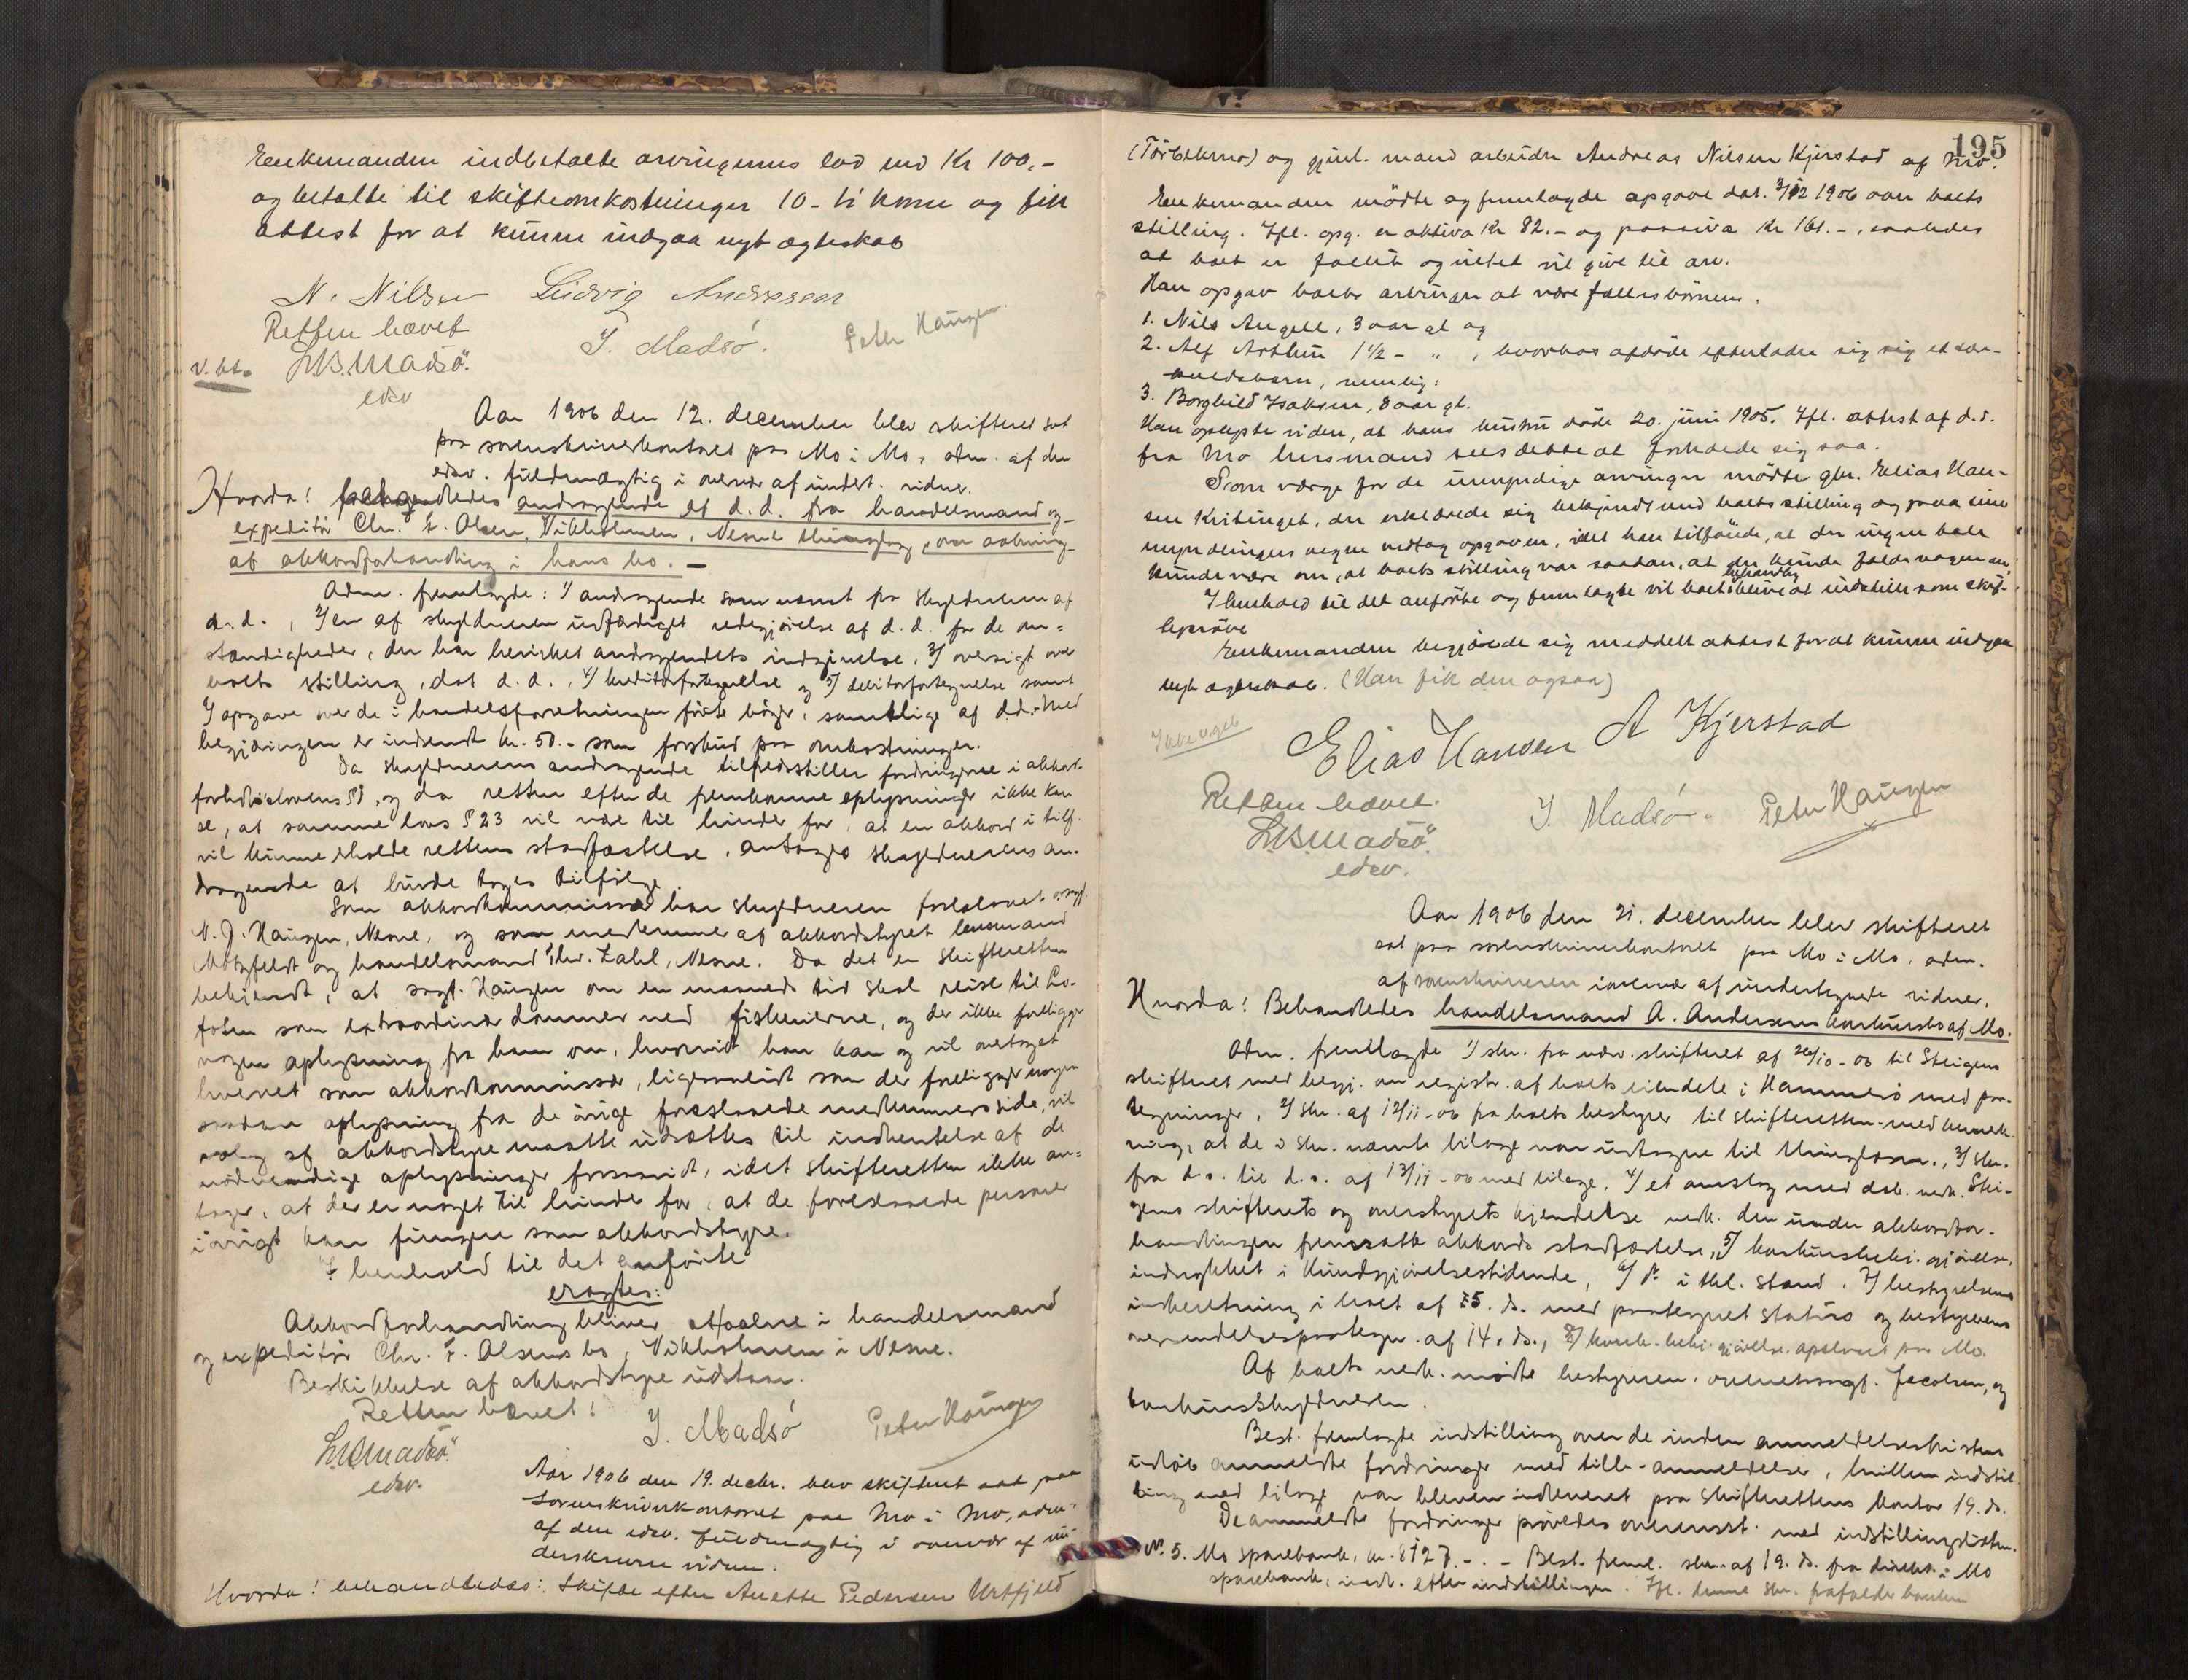 Enkemanden indbetalte arvingernes lod med Kr 100.-
og betalte til skifteomkostninger 10 - ti kroner og fik
attest for at kunne indgaa nyt ægteskab
N. Nilsen Ludvig Andresen
Retten hævet I. Madsö. Peter Haugen
V. bt. L.B. Madsö.
edsv
Aar 1906 den 12. december blev skifteret sat
paa sorenskriverkontoret paa Mo i Mo, adm. af den
edsv. fuldmægtig i overvær af undert. vidner.
Hvorda! andragende af d.d. fra handelsmand og
expeditör Chr. F. Olsen, Vikholmen, Nesne thinglag, om aabning
af akkordforhandling i hans bo. -
Adm. fremlagde: 1/ andragende som nævnt fra skyldneren af
d.d., 2/ en af skyldneren udfærdiget redegjörelse af d.d. for de om=
stændigheder, der har bevirket andragendets indgivelse, 3/ oversigt over
boets stilling, dat d.d., 4/ kreditorfortegnelse og 5/ debitorfortegnelse samt
6/ opgave over de i handelsforretningen förte böger, samtlige af d.d. Med
begjæringen er indsendt kr. 50.- som forskud paa omkostninger.
Da skyldnerens andragende tilfredsstiller fordringerne i akkord-
forhdls.lovens § 1, og da retten efter de fremkomne oplysninger ikke kan
se, at samme lovs § 23 vil være til hinder for, at en akkord i tilf.
vil kunne erholde rettens stadfæstelse, antages skyldnerens an-
dragende at burde tages tilfölge.
Som akkordkommissær har skyldneren foreslaaet o.r.sagf.
N. J. Haugen, Nesne, og som medlemmer af akkordstyret lensmand
Motzfeldt og handelsmand Chr. Zahl, Nesne. Da det er skifteretten
bekjendt, at sagf. Haugen om en maaneds tid skal reise til Lo-
foten som extraordinær dommer ved fiskerierne, og der ikke foreligger
nogen oplysning fra ham om, hvorvidt han kan og vil overtaget
hvervet som akkordkommissær, ligesaalidt som der foreligger nogen
saadan oplysning fra de övrige foreslaaede medlemmers side, vil
valg af akkordstyre maatte udsættes til indhentelse af de
nödvendige oplysninger forsaavidt, idet skifteretten ikke an=
tager, at der er noget til hinder for, at de foreslaaede personer
iövrigt kan fungere som akkordstyre.
I henhold til det anförte
eragtes:
Akkordforhandling bliver at aabne i handelsmand
og expeditör Chr. F. Olsens bo, Vikholmen i Nesne.
Beskikkelse af akkordstyre udstaar.
Retten hævet! I. Madsö Peter Haugen
L.B. Madsö.
edsv.
Aar 1906 den 19. decbr. blev skifteret sat paa
Sorenskriverkontoret paa Mo i Mo, adm.
af den edsv. fuldmægtig i overvær af un-
derskrevne vidner.
Hvorda! behandledes: Skifte efter Anette Pedersen Urtfjeld
195
(Törbekmo) og gjenl. mand arbeider Andreas Nilsen Kjerstad af Mo.
Enkemanden mödte og fremlagde opgave dat. 3/12 1906 over boets
stilling. Ifl. opg. er aktiva Kr 82.- og passiva Kr 161.-, saaledes
at boet er fallit og intet vil give til arv.
Han opgav boets arvinger at være fællesbörnene:
1. Nils Angell, 3 aar gl og
2. Alf Arthur 1 1/2 - " , hvorhos afdöde efterlader sig sig et sær-
kuldsbarn, nemlig:
3. Borghild Isaksen, 8 aar gl.
Han oplyste viden, at hans hustru döde 20. juni 1905. Ifl. attest af d.d.
fra Mo lensmand sees dette at forholde sig saa.
Som værge for de umyndige arvinger mödte gbr. Elias Han-
sen Kvitinget, der erklærede sig bekjendt med boets stilling og paa sine
myndlingers vegne vedtog opgaven, idet han tilföiede, at der ingen tale
kunde være om, at boets stilling var saadan, at der kunde falde nogen arv.
I henhold til det anförte og fremlagte vil boets behandling blive at indstille som skif-
leprøve
Enkemanden begjærede sig meddelt attest for at kunne indgaa
nyt ægteskab. (Han fik den ogsaa)
Ikke v. geb
Elias Hansen A Kjerstad
Retten hævet. I. Madsö. Peter Haugen
L.B. Madsö.
edsv.
Aar 1906 den 21. december blev skifteret
sat paa sorenskriverkontoret paa Mo i Mo, adm.
af sorenskriveren i overvær af undertegnede vidner.
Hvorda! Behandledes handelsmand A. Andersens konkursbo af Mo.
Adm. fremlagde 1/ skr. fra nærv. skifteret af 26/10-06 til Steigens
skifteret med begj. om registr. af boets eiendele i Hammerö med paa-
tegninger, 2/ skr. af 12/11-06 fra boets bestyrer til skifteretten med bemærk-
ning, at de i skr. nævnte bilage var udtagne til thinglæsn., 3/ skr.
fra d.s. til d.s. af 13/11-06 med bilage, 4/ et omslag med dok. vedk. Stei-
gens skifterets og overstyrets kjendelse vedk. den under akkordfor-
handlingen fremsatte akkords stadfæstelse, 5/ konkursbekj. gjörelse,
indrykket i Kundgjörelsestidende, 6/ do i Hel. Stand. 7/ bestyrelsens
indberetning i boet af 5. ds. med paategnet status og bestyrerens
oversendelsespaategn. af 14. ds., 8/ konk. bekj. gjörelse opslaaet paa Mo.
Af boets vedk. mödte bestyreren, overretssagf. Jacobsen, og
konkursskyldneren.
Best. fremlagde indstilling over de inden anmeldelsesfristens
udlöb anmeldte fordringer med tilh. anmeldelser, hvilken indstil-
ling med bilage var bleven indleveret paa skifterettens kontor 19. ds.
De anmeldte fordringer prövedes overensst. med indstillingslisten.
No. 5. Mo sparebank, kr. 8127.-. - Best. freml. skr. af 19. ds. fra direkt. i Mo
sparebank, vedk. efter indstillingen. Ifl. denne skr. frafalder banken